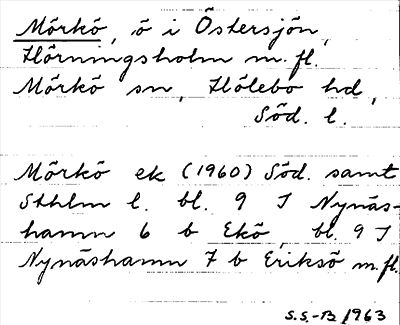 Mörkö, ö i Östersjön,
Hörningsholm m.fl.
Mörkö sn, Hölebo hd,
Söd. l.
Mörkö ek (1960) Söd. samt
Sthlm l. bl. 9 I Nynäs-
hamn 6 b Ekö, bl. 9 I
Nynäshamn 7 b Eriksö m.fl.
S.S.-B 1963